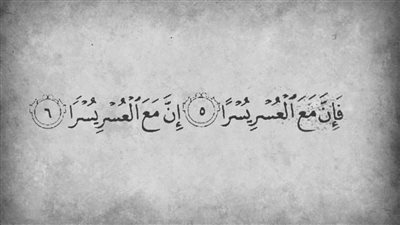 فَإِنَّ مَعَ ٱلْعُسْرِ يُسْرًا ٥ إِنَّ مَعَ ٱلْعُسْرِ يُسْرًا ٦